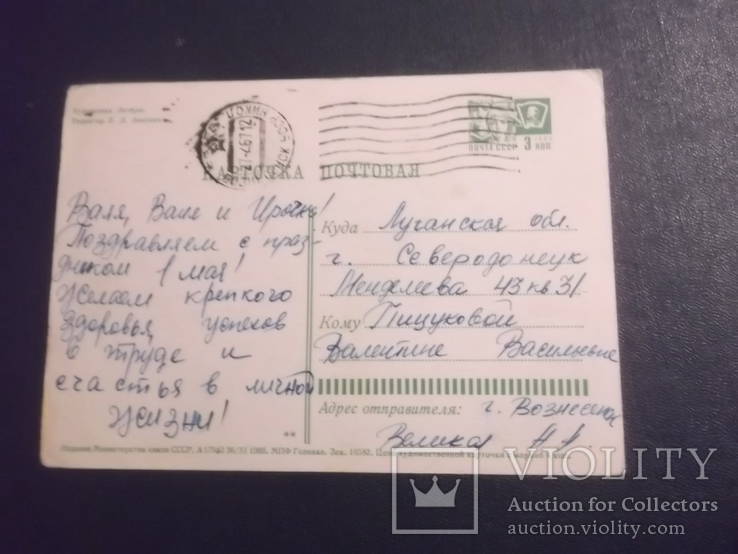 Редактор
КАРТОЧКА ПОЧТОВАЯ
ПОЧТА СССР 3 КОП
Валя, Ване и Ирочке!
Поздравляем с праз-
дником 1 мая!
Желаем крепкого
здоровья, успехов
в труде и
счастья в личной
жизни!
Куда Луганская обл.
г. Северодонецк
Менделеева 43 кв 31
Кому Пицуковой
Валентине Васильевне
Адрес отправителя: г. Вознесенск
Великая
Издание Министерства связи СССР. 1966. МПФ Гознака. Зак.
VIOLITY
Auction for Collectors
auction.violity.com